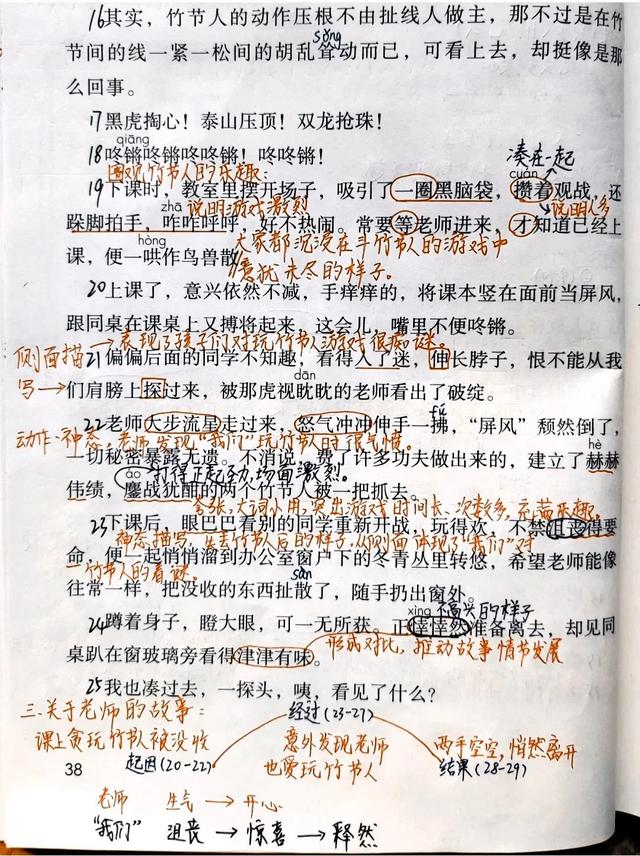 16其实，竹节人的动作压根不由扯线人做主，那不过是在竹
节间的线一紧一松间的胡乱耸动而已，可看上去，却挺像是那
sǒng
么回事。
17黑虎掏心！泰山压顶！双龙抢珠！
qiāng
18咚锵咚锵咚咚锵！咚咚锵！
凑在一起
围观竹节人的乐趣：
cuán
19下课时，教室里摆开场子，吸引了一圈黑脑袋，攒着观战，还
zhā
说明游戏激烈
说明人多
跺脚拍手，咋咋呼呼，好不热闹。常要等老师进来，才知道已经上
hòng
大家都沉浸在斗竹节人的游戏中
课，便一哄作鸟兽散
意犹未尽的样子。
20上课了，意兴依然不减，手痒痒的，将课本竖在面前当屏风，
跟同桌在课桌上又搏将起来，这会儿，嘴里不便咚锵。
侧面描写
表现了孩子们对玩竹节人游戏很痴迷。
21偏偏后面的同学不知趣，看得入了迷，伸长脖子，恨不能从我
dān
们肩膀上探过来，被那虎视眈眈的老师看出了破绽。
fú
22老师大步流星走过来，怒气冲冲伸手一拂，“屏风”颓然倒了，
动作、神态，老师发现“我们”玩竹节人时很气愤。
hè
一切秘密暴露无遗。不消说，费了许多功夫做出来的，建立了赫赫
áo
打得正起劲，场面激烈。
伟绩，鏖战犹酣的两个竹节人被一把抓去。
夸张、大词小用，突出游戏时间长、次数多，充满乐趣。
23下课后，眼巴巴看别的同学重新开战，玩得欢，不禁沮丧得要
神态描写，失去竹节人后的样子，从侧面体现了“我们”对
命，便一起悄悄溜到办公室窗户下的冬青丛里转悠，希望老师能像
竹节人的着迷。
sàn
往常一样，把没收的东西扯散了，随手扔出窗外。
xìng
不高兴的样子
24蹲着身子，瞪大眼，可一无所获。正悻悻然准备离去，却见同
桌趴在窗玻璃旁看得津津有味。
形成对比，推动故事情节发展
25我也凑过去，一探头，咦，看见了什么？
三.关于老师的故事：
经过(23-27)
课上贪玩竹节人被没收
意外发现老师
也爱玩竹节人
两手空空，悄然离开
38
起因(20-22)
结果(28-29)
老师 生气→开心
“我们” 沮丧→惊喜→释然